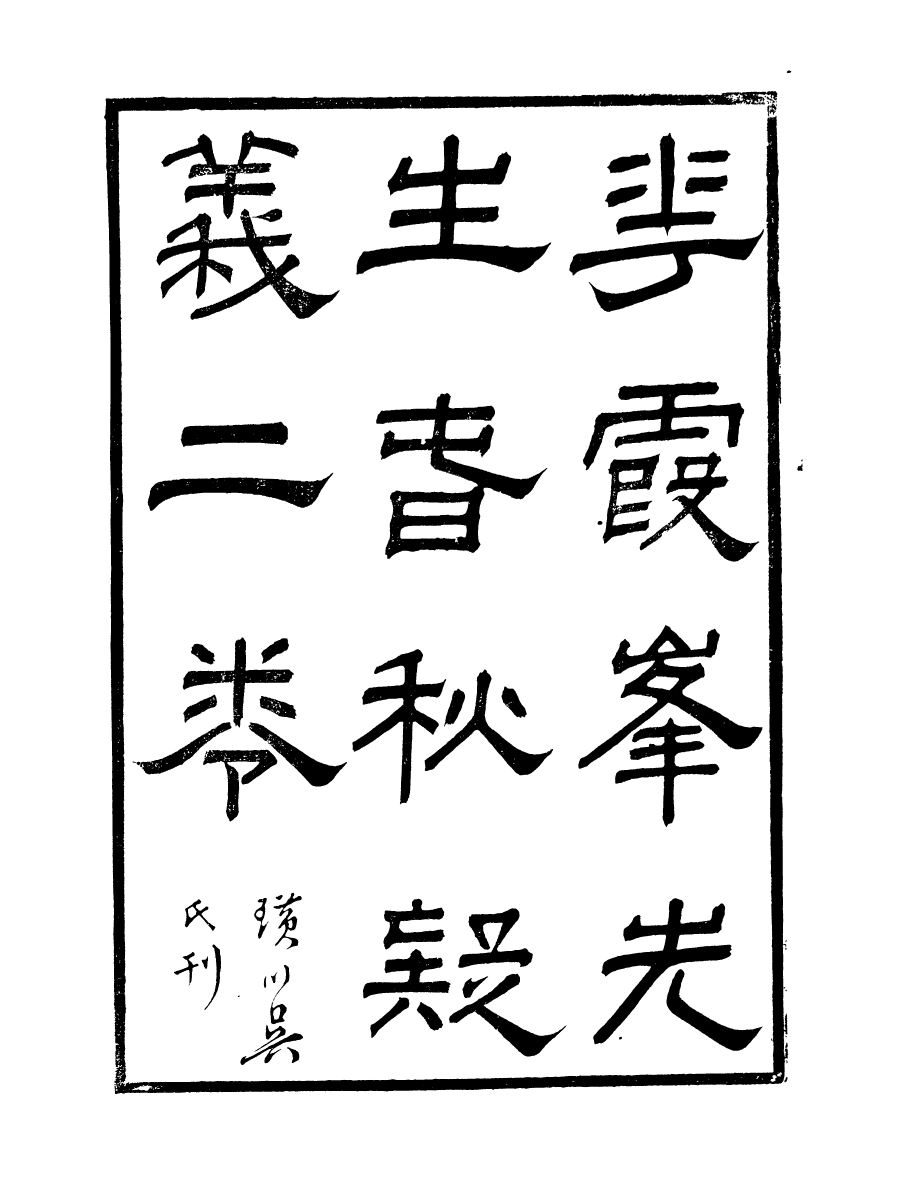 華霞峯先
生春秋疑
義二卷
璜川吳
氏刊